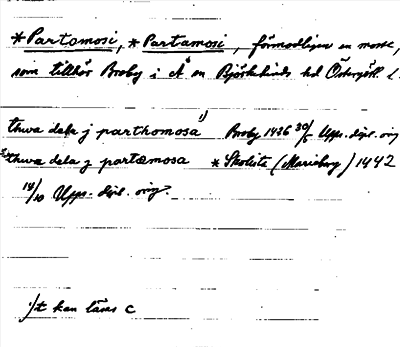 *Partomosi, *Partamosi, förmodligen en mosse,
som tillhör Broby i Å en Björkekinds hd Östergötl. L.
thwa dela j parthomosa 1) Broby 1436 30/6 Upps. dipl. orig
thwa dela j partæmosa * Skoloista (Marieberg) 1442
14/10 Upps. dipl. orig.
1) t kan läsas c